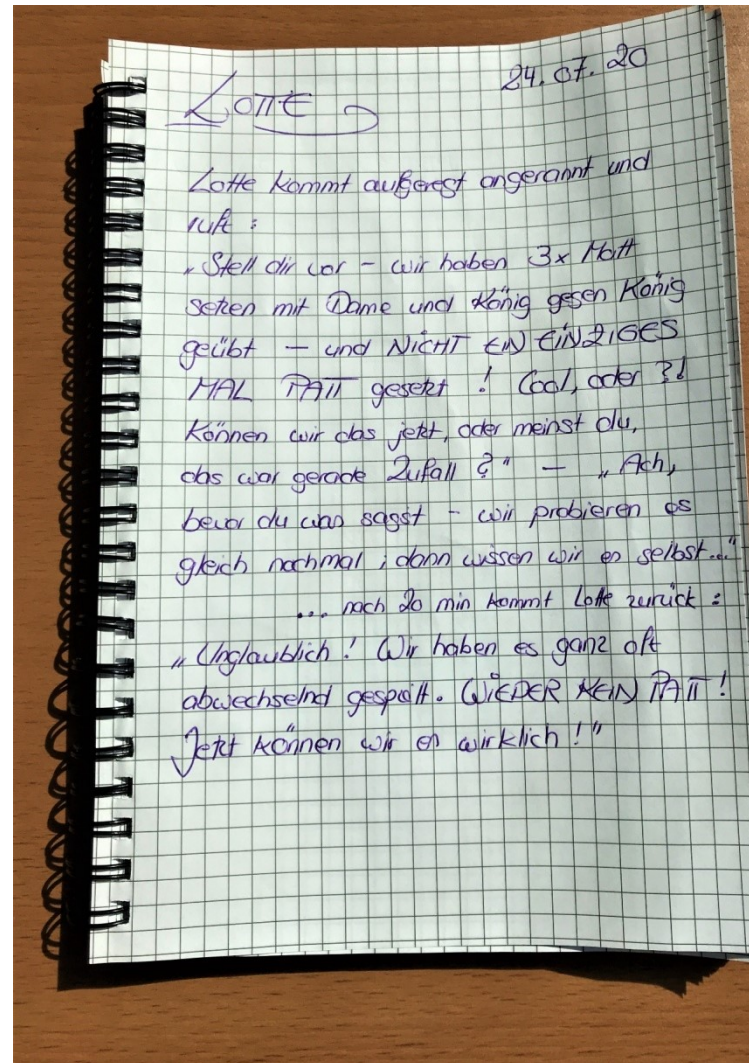 LOTTE
24.07.20
Lotte kommt aufgeregt angerannt und
ruft :
„Stell dir vor – wir haben 3x Matt
setzen mit Dame und König gegen König
geübt – und NICHT EIN EINZIGES
MAL PATT gesetzt ! Cool, oder ?!
Können wir das jetzt, oder meinst du,
das war gerade Zufall ?" – „Ach,
bevor du was sagst – wir probieren es
gleich nochmal ; dann wissen wir es selbst..."
... nach 20 min kommt Lotte zurück :
„Unglaublich ! Wir haben es ganz oft
abwechselnd gespielt. WIEDER KEIN PATT !
Jetzt können wir es wirklich !"